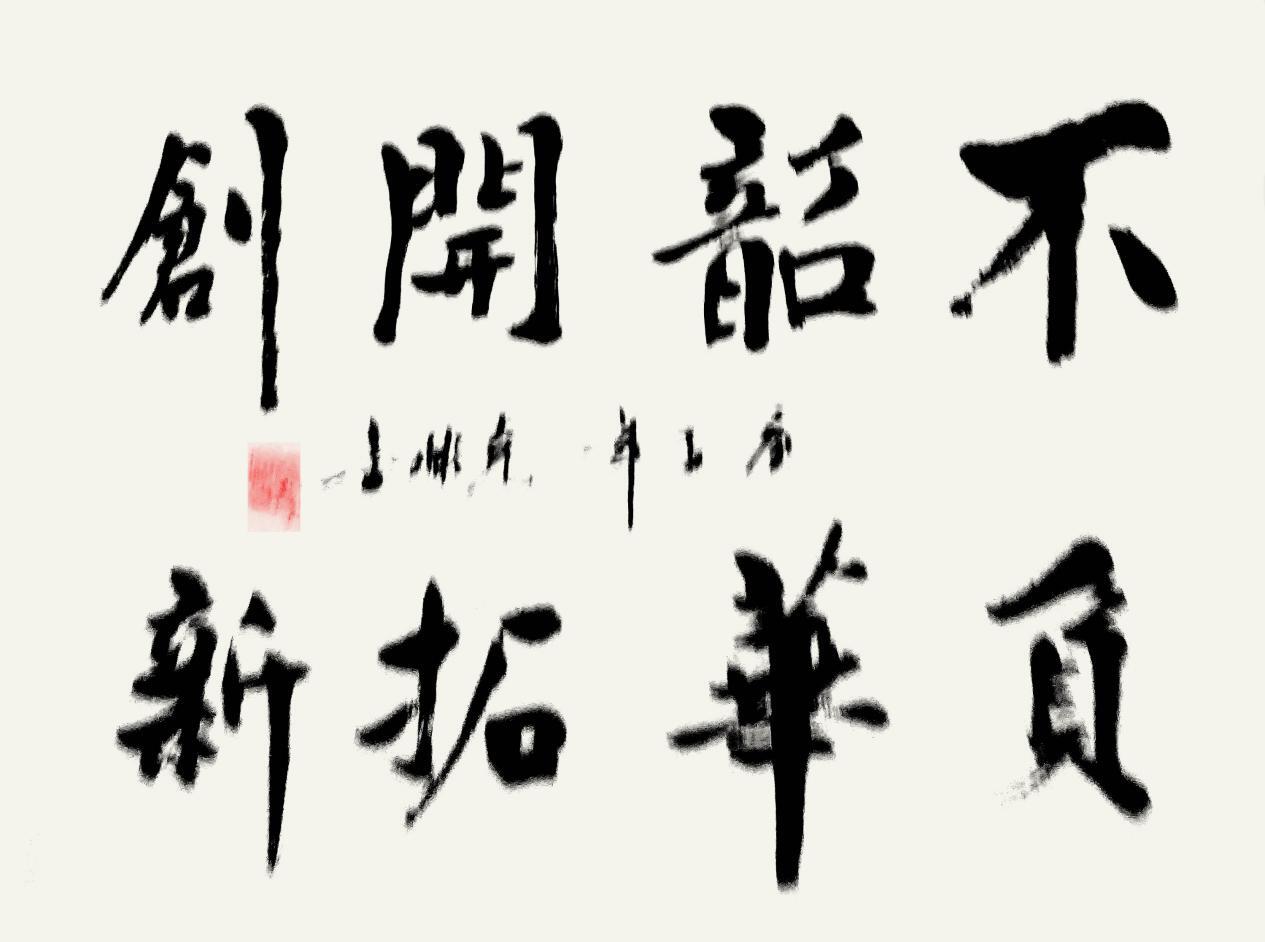 不負
韶華
開拓
創新